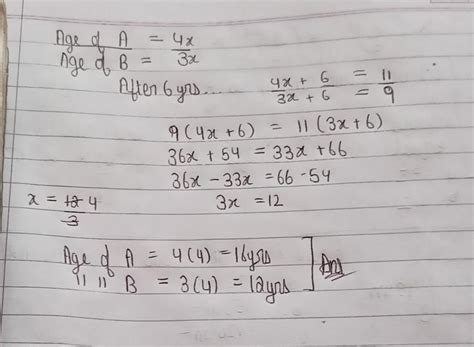 Age of A = 4x
Age of B = 3x
After 6 yrs.... 4x + 6 = 11
3x + 6 = 9
9(4x+6) = 11(3x+6)
36x + 54 = 33x + 66
36x - 33x = 66 - 54
x = 12 4 3x = 12
3
Age of A = 4(4) = 16yrs
" " B = 3(4) = 12yrs ] Ans